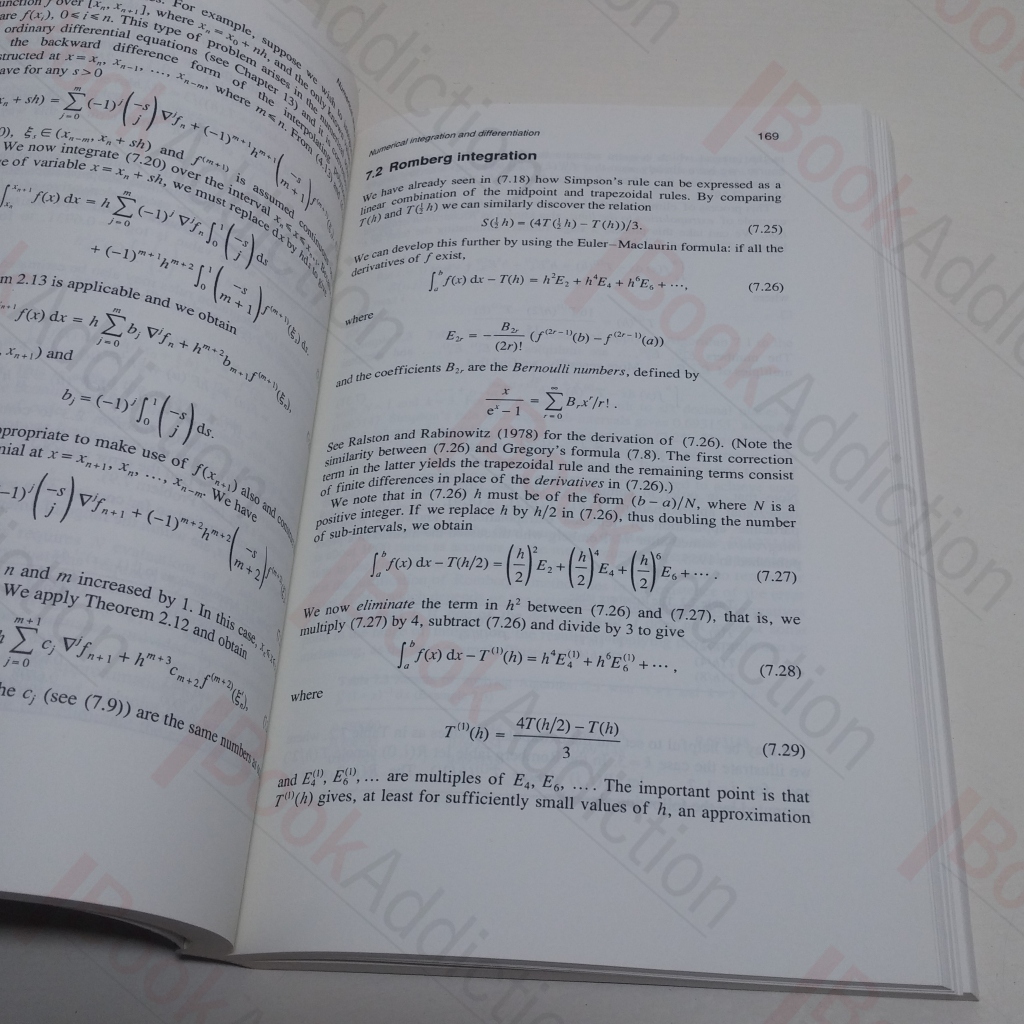 function f over [xₙ, xₙ₊₁], where xₙ = x₀ + nh, and the only
For example, suppose we wish to
are f(xᵢ), 0 ≤ i ≤ n. This type of problem arises in the
ordinary differential equations (see Chapter 13) and it is
the backward difference form of the interpolating
structed at x = xₙ, xₙ₋₁, …, xₙ₋ₘ, where m ≤ n. From (4.
ave for any s > 0
xₙ + sh) = ∑_{j=0}^{m} (−1)^j (−s j) ∇^j fₙ + (−1)^{m+1} h^{m+1} (−s m+1) f^{(m+1)}
)), ξₛ ∈ (xₙ₋ₘ, xₙ + sh) and f^{(m+1)} is assumed
We now integrate (7.20) over the interval xₙ ≤ x ≤ xₙ₊₁.
e of variable x = xₙ + sh, we must replace dx by h ds to give
∫_{xₙ}^{xₙ₊₁} f(x) dx = h ∑_{j=0}^{m} (−1)^j ∇^j fₙ ∫_0^1 (−s j) ds
+ (−1)^{m+1} h^{m+2} ∫_0^1 (−s m+1) f^{(m+1)}(ξₛ) ds.
m 2.13 is applicable and we obtain
f(x) dx = h ∑_{j=0}^{m} b_j ∇^j fₙ + h^{m+2} b_{m+1} f^{(m+1)}(ξₙ),
, xₙ₊₁) and
b_j = (−1)^j ∫_0^1 (−s j) ds.
propriate to make use of f(xₙ₊₁) also and
nial at x = xₙ₊₁, xₙ, …, xₙ₋ₘ. We have
−1)^j (−s j) ∇^j fₙ₊₁ + (−1)^{m+2} h^{m+2} (−s m+2) f^{(m+2)}
n and m increased by 1. In this case,
We apply Theorem 2.12 and obtain
∑_{j=0}^{m+1} c_j ∇^j fₙ₊₁ + h^{m+3} c_{m+2} f^{(m+2)}(ξ′ₙ),
he c_j (see (7.9)) are the same numbers
Numerical integration and differentiation 169
7.2 Romberg integration
We have already seen in (7.18) how Simpson's rule can be expressed as a
linear combination of the midpoint and trapezoidal rules. By comparing
T(h) and T(½h) we can similarly discover the relation
S(½h) = (4T(½h) − T(h))/3. (7.25)
We can develop this further by using the Euler–Maclaurin formula: if all the
derivatives of f exist,
∫_a^b f(x) dx − T(h) = h²E₂ + h⁴E₄ + h⁶E₆ + ⋯, (7.26)
where
E₂ᵣ = − B₂ᵣ/(2r)! (f^{(2r−1)}(b) − f^{(2r−1)}(a))
and the coefficients B₂ᵣ are the Bernoulli numbers, defined by
x/(eˣ − 1) = ∑_{r=0}^{∞} Bᵣxʳ/r! .
See Ralston and Rabinowitz (1978) for the derivation of (7.26). (Note the
similarity between (7.26) and Gregory's formula (7.8). The first correction
term in the latter yields the trapezoidal rule and the remaining terms consist
of finite differences in place of the derivatives in (7.26).)
We note that in (7.26) h must be of the form (b − a)/N, where N is a
positive integer. If we replace h by h/2 in (7.26), thus doubling the number
of sub-intervals, we obtain
∫_a^b f(x) dx − T(h/2) = (h/2)² E₂ + (h/2)⁴ E₄ + (h/2)⁶ E₆ + ⋯ . (7.27)
We now eliminate the term in h² between (7.26) and (7.27), that is, we
multiply (7.27) by 4, subtract (7.26) and divide by 3 to give
∫_a^b f(x) dx − T⁽¹⁾(h) = h⁴E₄⁽¹⁾ + h⁶E₆⁽¹⁾ + ⋯ , (7.28)
where
T⁽¹⁾(h) = (4T(h/2) − T(h))/3 (7.29)
and E₄⁽¹⁾, E₆⁽¹⁾, … are multiples of E₄, E₆, …. The important point is that
T⁽¹⁾(h) gives, at least for sufficiently small values of h, an approximation
BookAddiction